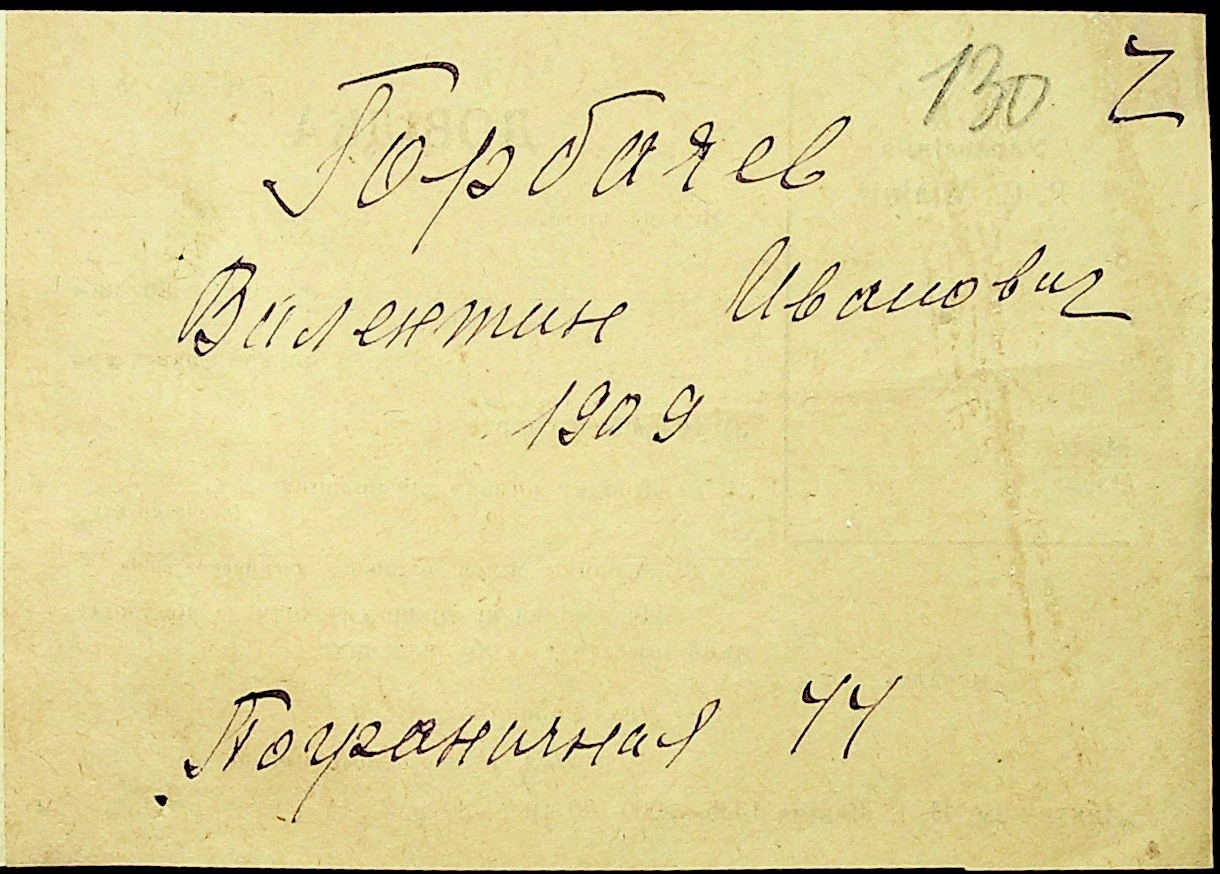 130
Горбачев
Валентин Иванович
1909
Пограничная 44